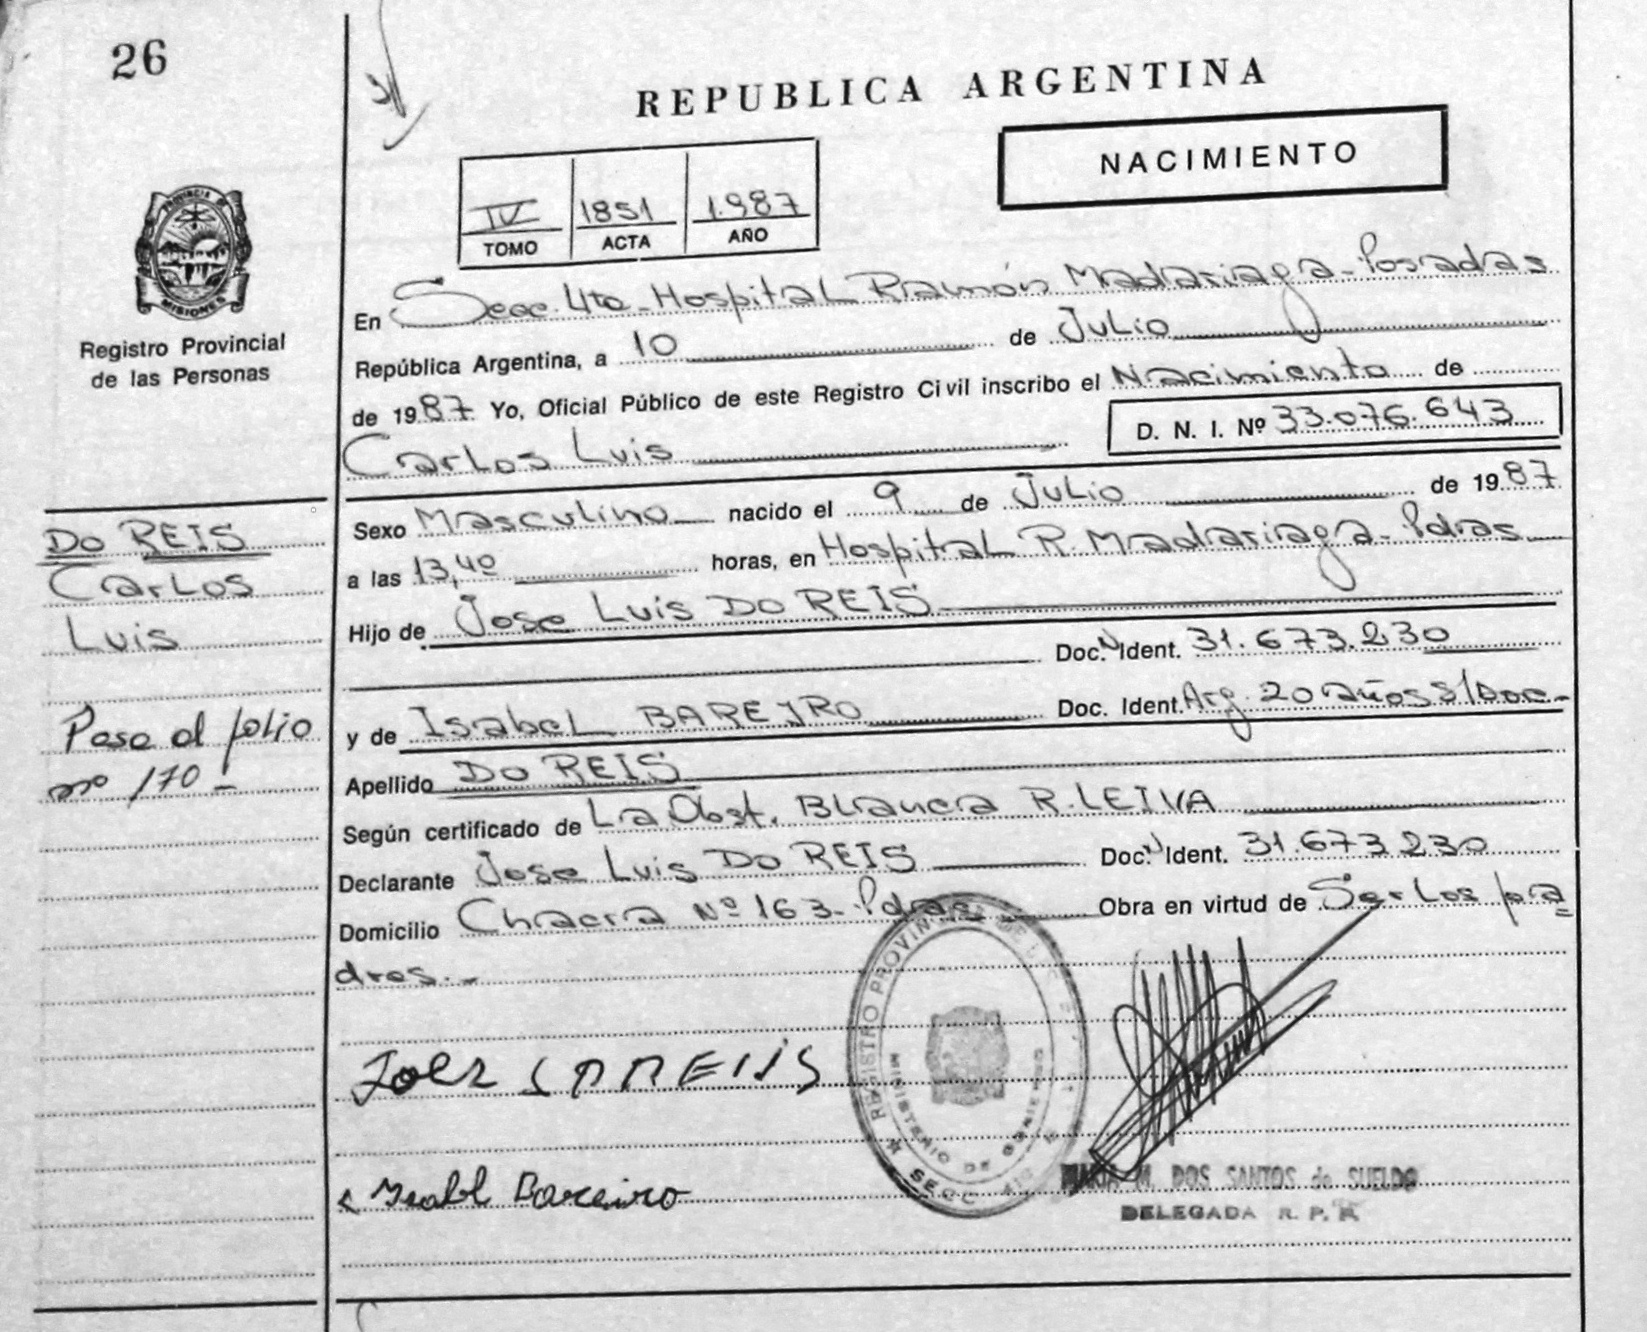 26
REPUBLICA ARGENTINA
NACIMIENTO
IV 1851 1.987
TOMO ACTA AÑO
PROVINCIA DE
MISIONES
Registro Provincial
de las Personas
En Secc. 4ta - Hospital Ramón Madariaga - Posadas
República Argentina, a 10 de Julio
de 1987 Yo, Oficial Público de este Registro Civil inscribo el Nacimiento de
Carlos Luis D. N. I. Nº 33.076.643
DO REIS
Carlos
Luis
Pasa al folio
nº 170 -
Sexo Masculino nacido el 9 de Julio de 1987
a las 13,40 horas, en Hospital R. Madariaga - Pdas
Hijo de Jose Luis DO REIS
Doc. N Ident. 31.673.230
y de Isabel BAREYRO Doc. Ident. Arg. 20 años S/Doc.-
Apellido DO REIS
Según certificado de La Obst. Blanca R. LEIVA
Declarante Jose Luis DO REIS Doc. N Ident. 31.673.230
Domicilio Chacra Nº 163 - Pdas Obra en virtud de Ser Los pa=
dres.-
REGISTRO PROVINCIAL DE LAS
MINISTERIO DE GOBIERNO
SECC. 4ta
Isabel Bareiro
MARIA M. DOS SANTOS de SUELDO
DELEGADA R. P. P.